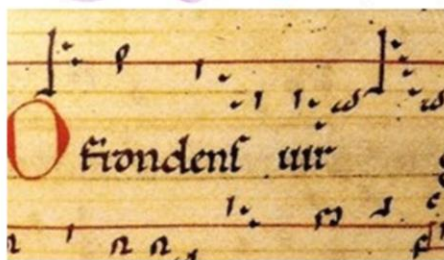 O frondenſ uir